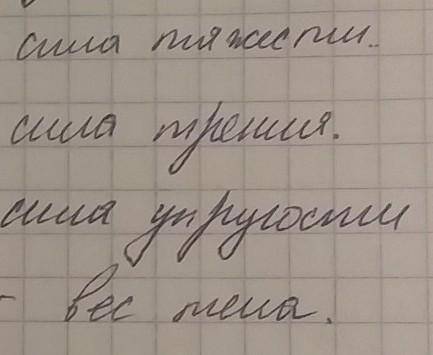 сила тяжести.
сила трения.
сила упругости
- вес тела.